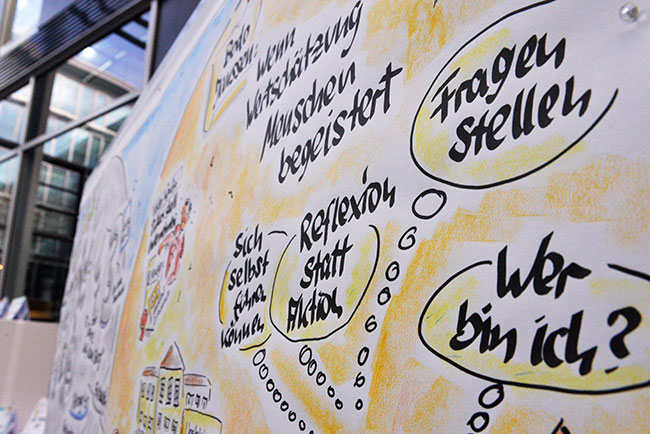 Bodo
Janssen:
Wenn
Wertschätzung
Menschen
begeistert
Fragen
stellen
Sich
selbst
führen
können
Reflexion
statt
Aktion
Wer
bin ich?